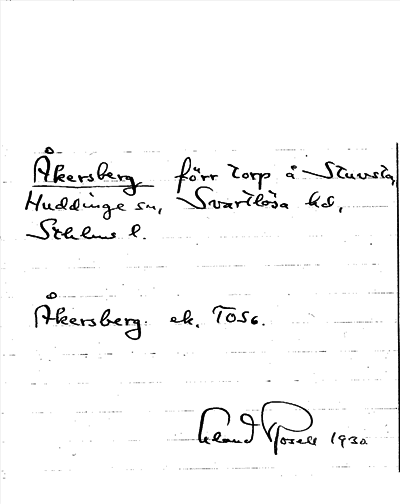 Åkersberg förr torp å Stuvsta,
Huddinge sn, Svartlösa hd,
Sthlms l.
Åkersberg. ek. TOSG.
Erland Rosell 1930